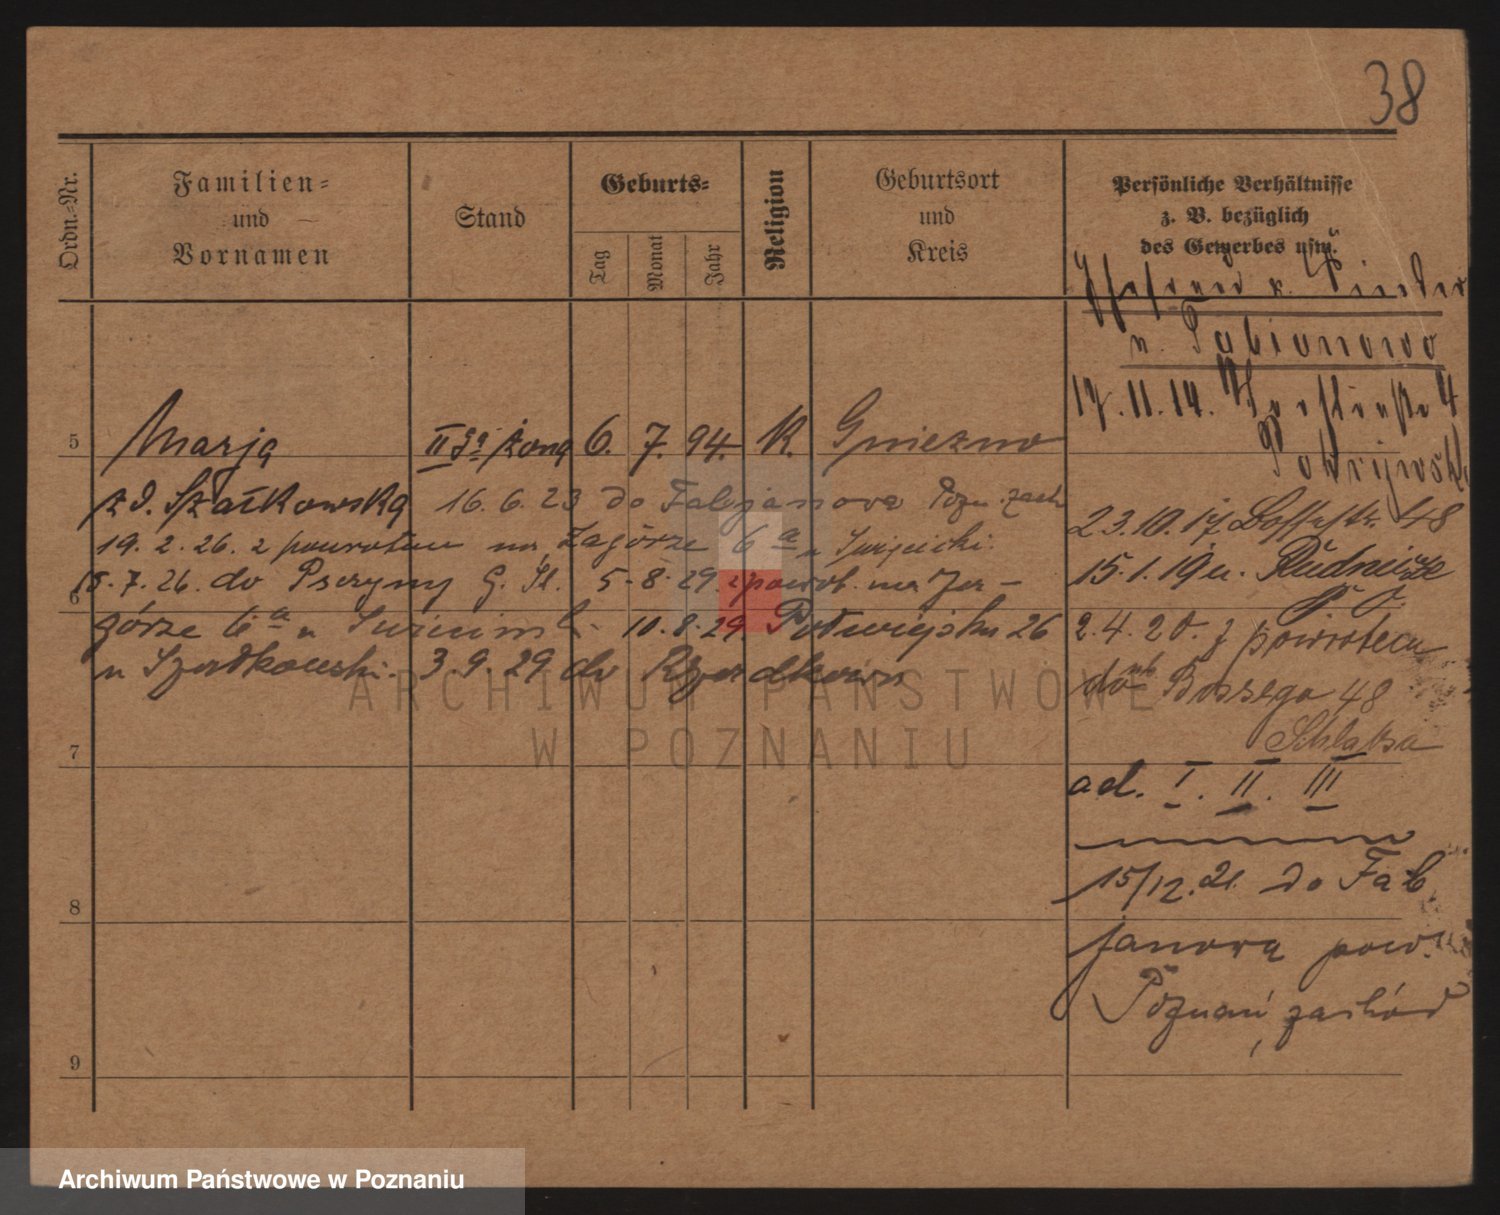 38
Ordn.-Nr.
Familien-
und
Vornamen
Stand
Geburts-
Tag
Monat
Jahr
Religion
Geburtsort
und
Kreis
Persönliche Verhältnisse
z. B. bezüglich
des Gewerbes usw.
Ehefrau u. Kinder
n. Fabianowo
17.11.14. 4
5 Marja II ga żona 6. 7. 94. K. Gniezno
zd. Szałkowska 16. 6. 23 do Fabjanowa Pozn. zach
23.10.17 48
19. 2. 26. z powrotem na Zagórze 6 a u Święcicki.
15.1.19 u. Rudnicze
18. 7. 26. do Pszczyny G. Śl. 5. 8. 29. z powrot. na Za-
6
górze 6 a u 10. 8. 29. Półwiejska 26
2. 4. 20. z powrotem
u Szadkowski. 3. 9. 29. do
do Bossego 48
7
ad. I. II. III
15/12. 21. do Fab
8
janowa pow.
Poznań zachód
9
ARCHIWUM PAŃSTWOWE
W POZNANIU
Archiwum Państwowe w Poznaniu